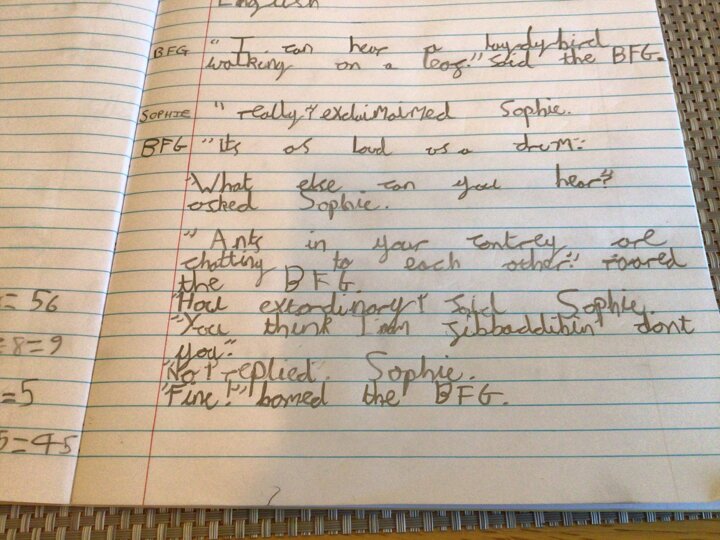 English
BFG "I can hear a laydybird
walking on a leaf." said the BFG.
SOPHIE "really"! exclaimaimed Sophie.
BFG "its as loud as a drum."
"What else can you hear?"
asked Sophie.
"Ants in your contrey are
chatting to each other." roared
the BFG.
"How extordinary"! said Sophie.
"You think I am jibbaddibin dont
you."
"No"! replied Sophie.
"Fine!" bomed the BFG.
= 56
÷8=9
=5
5=45